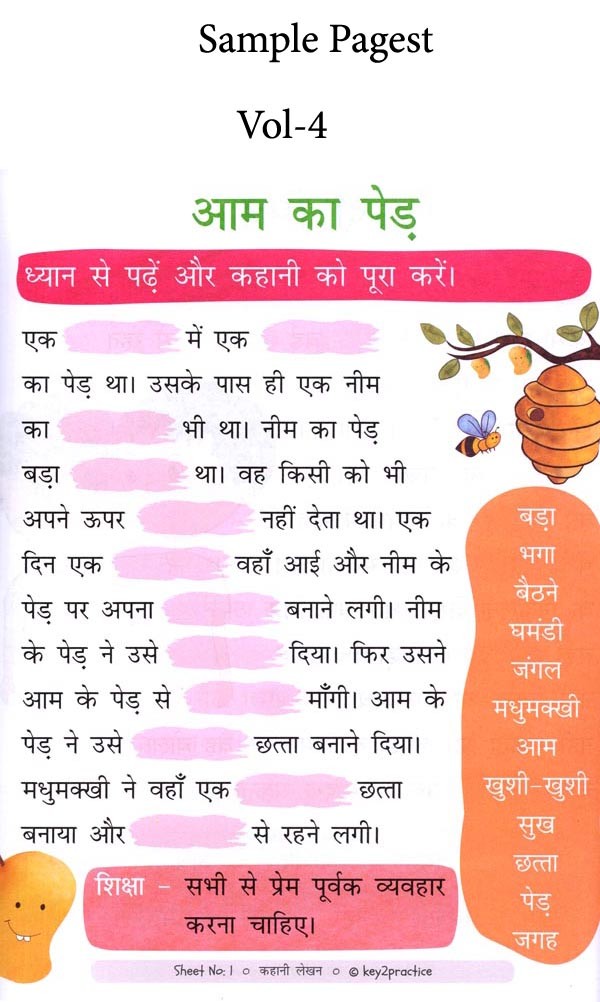 Sample Pagest
Vol-4
आम का पेड़
ध्यान से पढ़ें और कहानी को पूरा करें।
एक में एक
का पेड़ था। उसके पास ही एक नीम
का भी था। नीम का पेड़
बड़ा था। वह किसी को भी
अपने ऊपर नहीं देता था। एक
दिन एक वहाँ आई और नीम के
पेड़ पर अपना बनाने लगी। नीम
के पेड़ ने उसे दिया। फिर उसने
आम के पेड़ से माँगी। आम के
पेड़ ने उसे छत्ता बनाने दिया।
मधुमक्खी ने वहाँ एक छत्ता
बनाया और से रहने लगी।
बड़ा
भगा
बैठने
घमंडी
जंगल
मधुमक्खी
आम
खुशी-खुशी
सुख
छत्ता
पेड़
जगह
शिक्षा - सभी से प्रेम पूर्वक व्यवहार
करना चाहिए।
Sheet No: 1 ० कहानी लेखन ० © key2practice